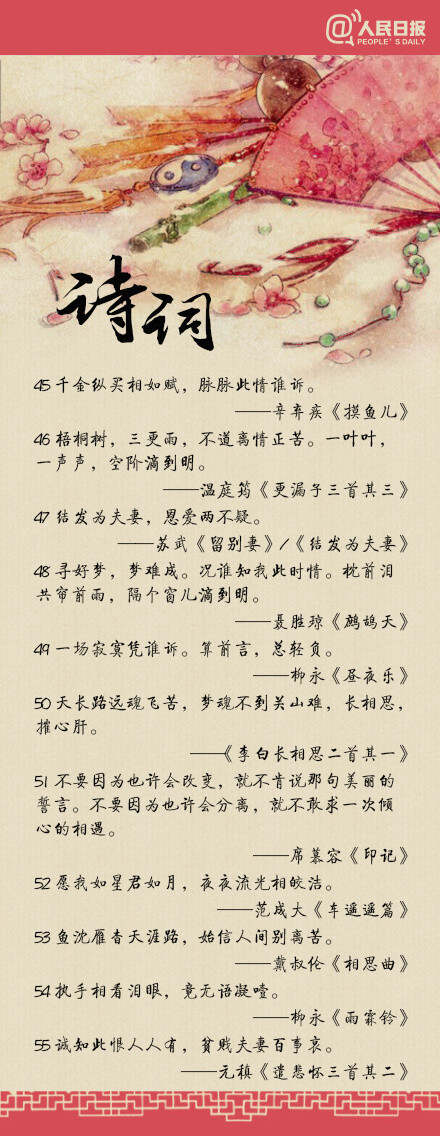 @人民日报
PEOPLE'S DAILY
诗词
45 千金纵买相如赋，脉脉此情谁诉。
——辛弃疾《摸鱼儿》
46 梧桐树，三更雨，不道离情正苦。一叶叶，
一声声，空阶滴到明。
——温庭筠《更漏子三首其三》
47 结发为夫妻，恩爱两不疑。
——苏武《留别妻》/《结发为夫妻》
48 寻好梦，梦难成。况谁知我此时情。枕前泪
共帘前雨，隔个窗儿滴到明。
——聂胜琼《鹧鸪天》
49 一场寂寞凭谁诉。算前言，总轻负。
——柳永《昼夜乐》
50 天长路远魂飞苦，梦魂不到关山难，长相思，
摧心肝。
——《李白长相思二首其一》
51 不要因为也许会改变，就不肯说那句美丽的
誓言。不要因为也许会分离，就不敢求一次倾
心的相遇。
——席慕容《印记》
52 愿我如星君如月，夜夜流光相皎洁。
——范成大《车遥遥篇》
53 鱼沈雁杳天涯路，始信人间别离苦。
——戴叔伦《相思曲》
54 执手相看泪眼，竟无语凝噎。
——柳永《雨霖铃》
55 诚知此恨人人有，贫贱夫妻百事哀。
——元稹《遣悲怀三首其二》